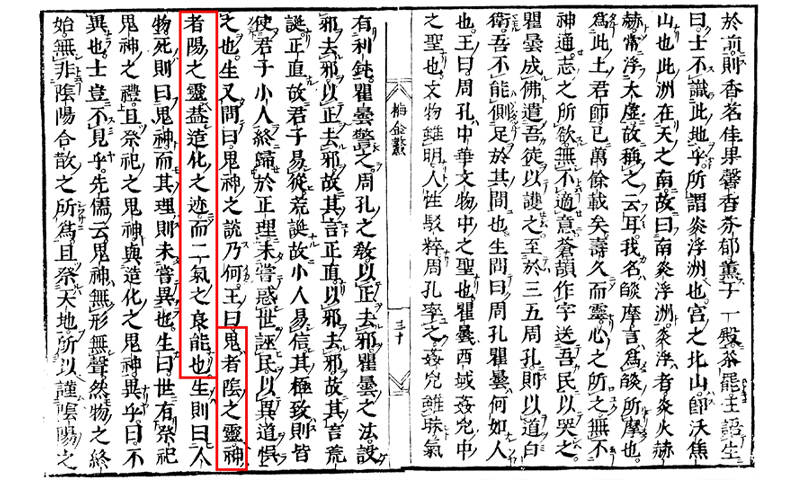 於前則香茗佳果馨香芬郁薰于一殿茶罷王語生
曰士不識此地乎所謂炎浮洲也宮之北山即沃焦
山也此洲在天之南故曰南炎浮洲炎浮者炎火赫
赫常浮大虛故稱之云耳我名燄摩言爲燄所摩也
爲此土君師已萬餘載矣壽久而靈心之所之無不
神通志之所欲無不適意蒼頡作字送吾民以哭之
瞿曇成佛遣吾徒以護之至於三五周孔則以道自
衛吾不能側足於其間也生問曰周孔瞿曇何如人
也王曰周孔中華文物中之聖也瞿曇西域姦兇中
之聖也文物雖明人性駁粹周孔率之姦兇雖昧氣
梅金
三十
有利鈍瞿曇警之周孔之敎以正去邪瞿曇之法設
邪去邪以正去邪故其言正直以邪去邪故其言荒
誕正直故君子易從荒誕故小人易信其極致則皆
使君子小人終歸於正理未嘗惑世誣民以異道悞
之也生又問曰鬼神之說乃何王曰鬼者陰之靈神
者陽之靈盖造化之迹而二氣之良能也生則曰人
物死則曰鬼神而其理則未嘗異也生曰世有祭祀
鬼神之禮且祭祀之鬼神與造化之鬼神異乎曰不
異也士豈不見乎先儒云鬼神無形無聲然物之終
始無非陰陽合散之所爲且祭天地所以謹陰陽之